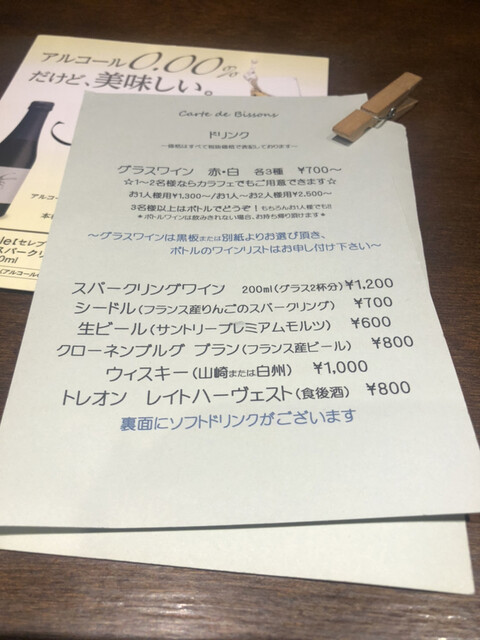 アルコール0.00%
だけど、美味しい。
Carte de Bissons
ドリンク
グラスワイン 赤・白 各3種 ¥700～
☆1～2名様ならカラフェでもご用意できます☆
お1人様用¥1,300～/お1人～お2人様用¥2,500～
3名様以上はボトルでどうぞ！もちろんお1人様でも!!
*ボトルワインは飲みきれない場合、お持ち帰り頂けます*
～グラスワインは黒板または別紙よりお選び頂き、
ボトルのワインリストはお申し付け下さい～
スパークリングワイン 200ml(グラス2杯分)¥1,200
シードル(フランス産りんごのスパークリング) ¥700
生ビール(サントリープレミアムモルツ) ¥600
クローネンブルグ ブラン(フランス産ビール) ¥800
ウィスキー(山崎または白州) ¥1,000
トレオン レイトハーヴェスト(食後酒) ¥800
裏面にソフトドリンクがございます
アルコ
本
letセレブ
スパークリ
0ml
(アルコール